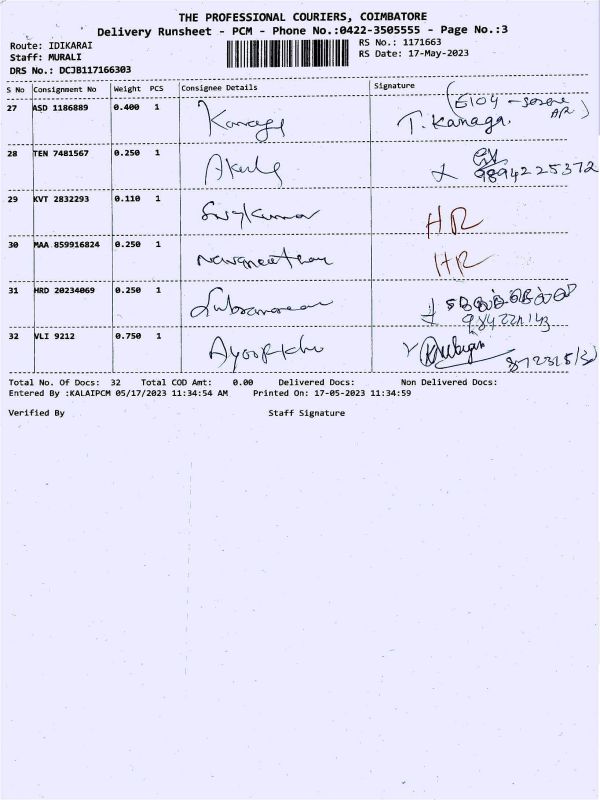 THE PROFESSIONAL COURIERS, COIMBATORE
Delivery Runsheet - PCM - Phone No.:0422-3505555 - Page No.:3
Route: IDIKARAI
RS No.: 1171663
Staff: MURALI
RS Date: 17-May-2023
DRS No.: DCJB117166303
S No Consignment No Weight PCS Consignee Details Signature
(E104
27 ASD 1186889 0.400 1 T. Kanaga.
28 TEN 7481567 0.250 1
9894225372
29 KVT 2832293 0.110 1 HR
30 MAA 859916824 0.250 1 Navaneethan HR
31 HRD 20234069 0.250 1
32 VLI 9212 0.750 1
Total No. Of Docs: 32 Total COD Amt: 0.00 Delivered Docs: Non Delivered Docs:
Entered By :KALAIPCM 05/17/2023 11:34:54 AM Printed On: 17-05-2023 11:34:59
Verified By Staff Signature